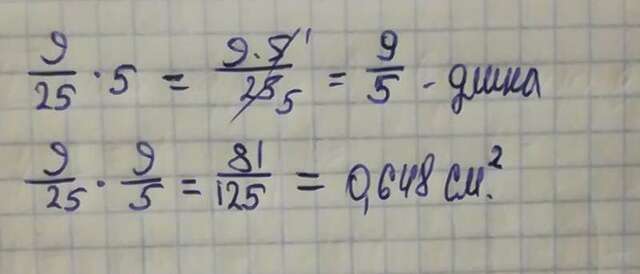 9/25 · 5 = 9·5 1/25 5 = 9/5 - длина
9/25 · 9/5 = 81/125 = 0,648 см.²